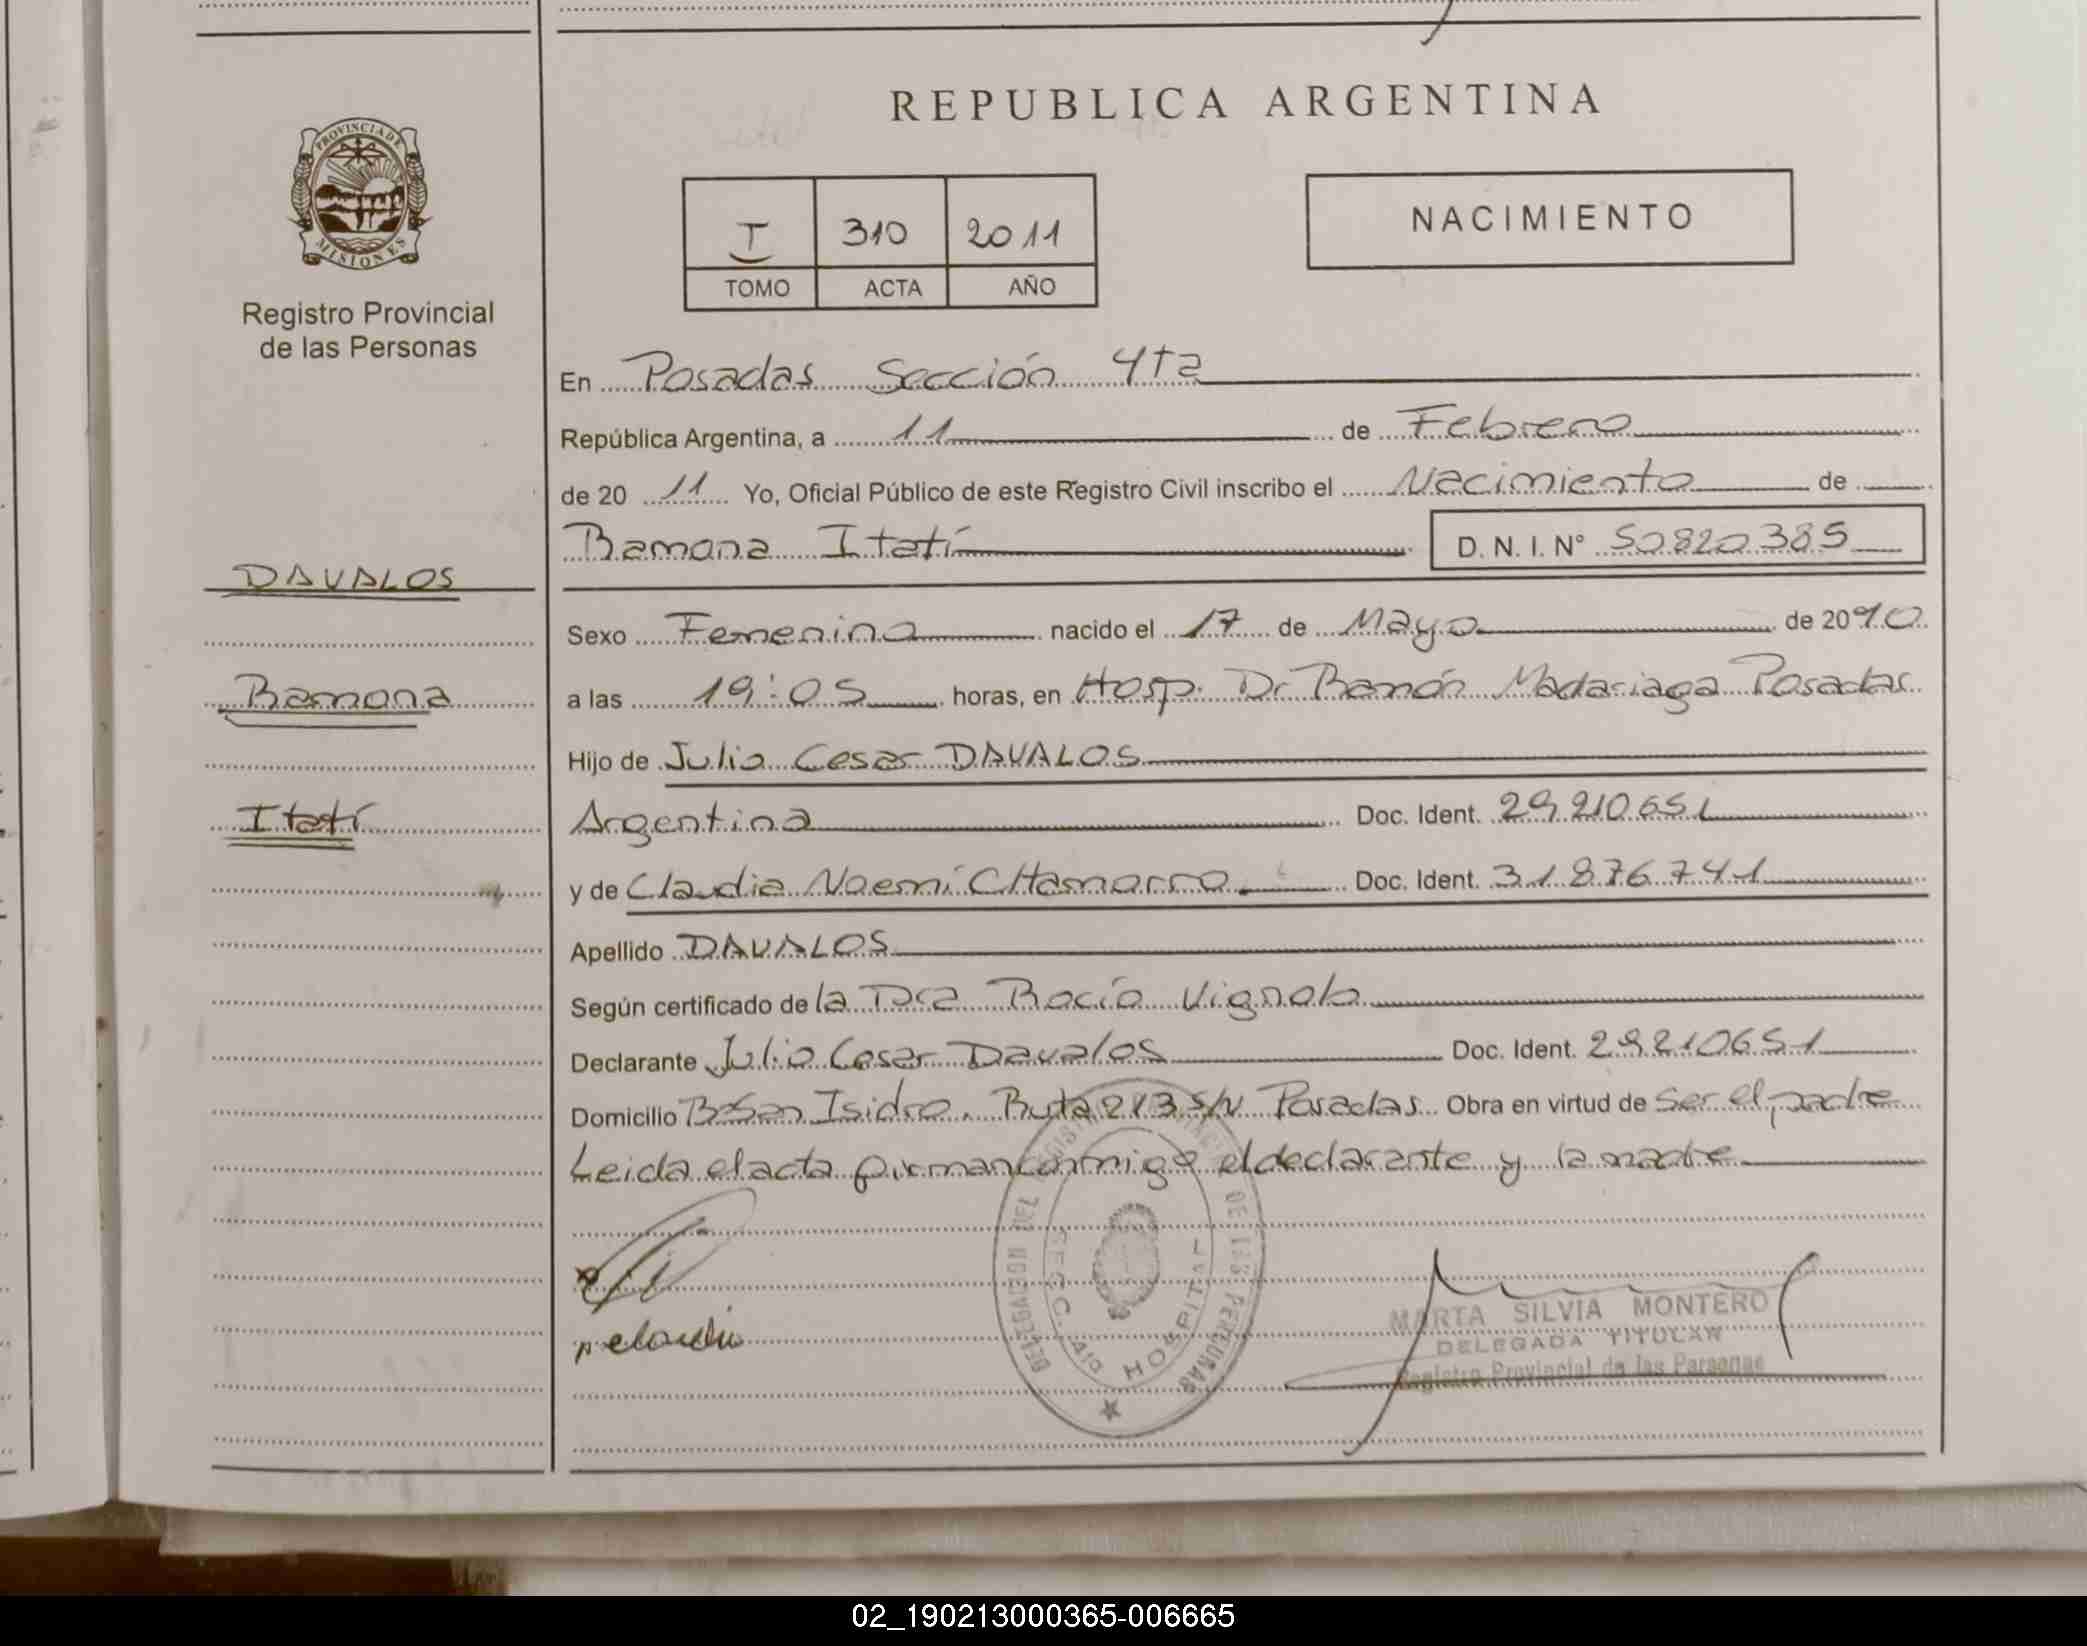 REPUBLICA ARGENTINA
PROVINCIA DE MISIONES
Registro Provincial
de las Personas
I 310 2011
TOMO ACTA AÑO
NACIMIENTO
En Posadas Sección 4ta
República Argentina, a 11 de Febrero
de 20 11 Yo, Oficial Público de este Registro Civil inscribo el Nacimiento de
Ramona Itatí D. N. I. Nº 50820385
DAVALOS
Ramona
Itatí
Sexo Femenino nacido el 17 de Mayo de 2010
a las 19:05 horas, en Hosp. Dr Ramón Madariaga Posadas
Hijo de Julio Cesar DAVALOS
Argentina Doc. Ident. 29.210.651
y de Claudia Noemí CHamorro Doc. Ident. 31.876.741
Apellido DAVALOS
Según certificado de la Dra Rocío Vignola
Declarante Julio Cesar Davalos Doc. Ident. 29210651
Domicilio Bº San Isidro. Ruta 213 s/n Posadas Obra en virtud de ser el padre
Leida el acta firman conmigo el declarante y la madre
DELEGACION DEL REGISTRO PROVINCIAL DE LAS PERSONAS
SECC. 4ta HOSPITAL
MARTA SILVIA MONTERO
DELEGADA TITULAR
Registro Provincial de las Personas
02_190213000365-006665